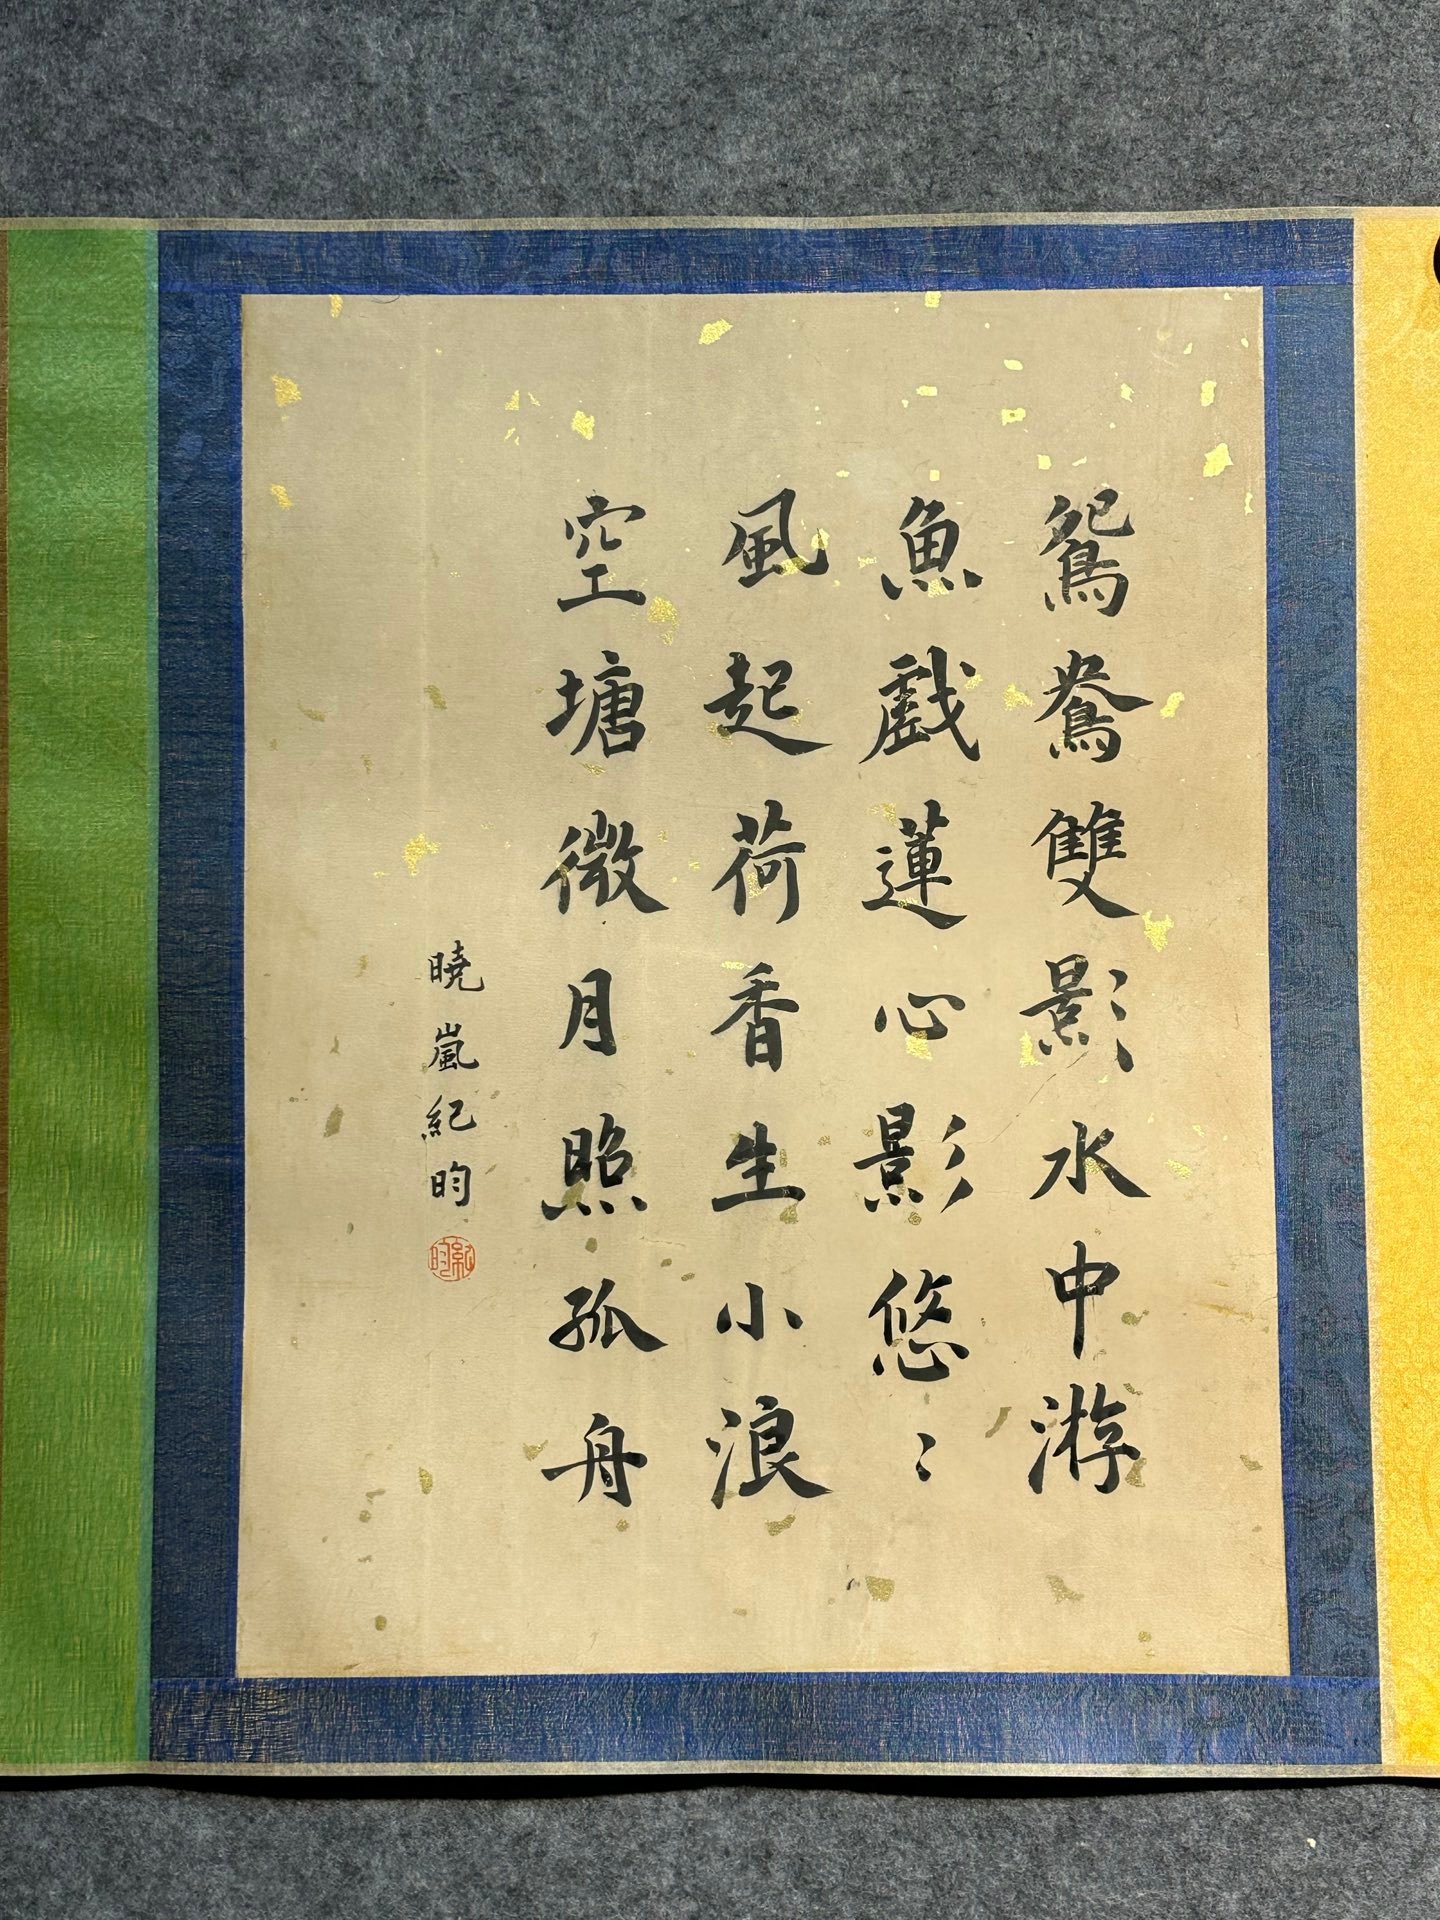 鴛鴦雙影水中游
魚戲蓮心影悠〻
風起荷香生小浪
空塘微月照孤舟
曉嵐紀昀
紀昀